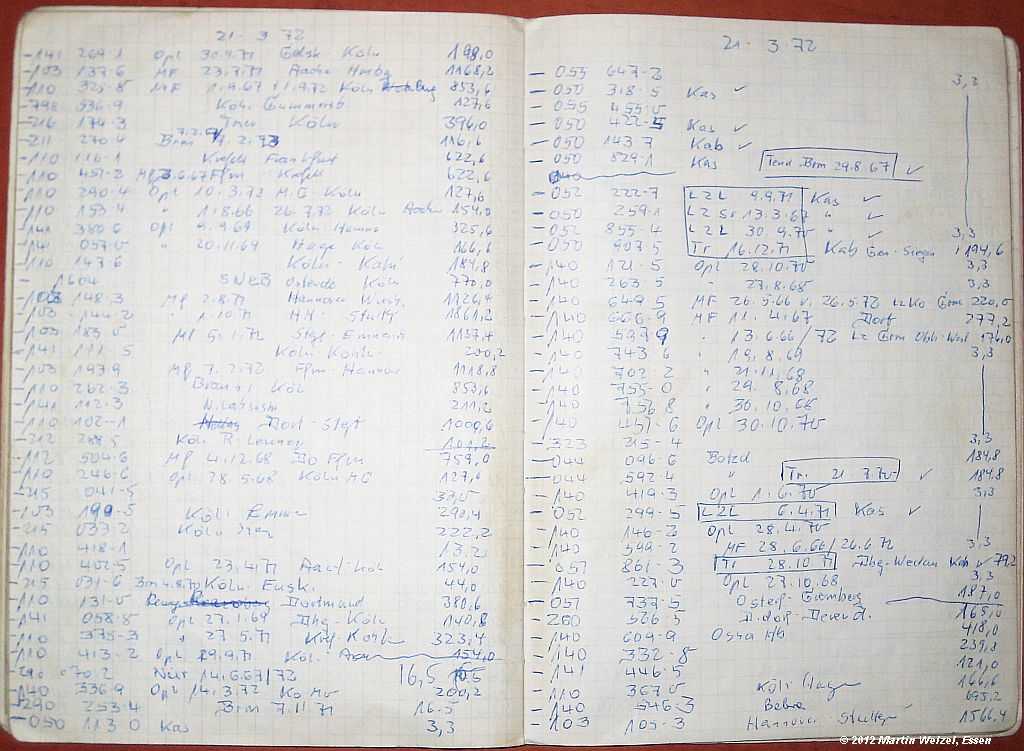 21 - 3 72
-141 269-1 Opl 30.9.71 Gdsk-Köln 198,0
-103 137-6 MF 23.7.71 Aachen Hmbg 1168,2
-110 325-8 MF 1.9.67 Köln 853,6
-798 536-9 Köln Gummersb 127,6
-216 174-3 Trier Köln 396,0
-211 270-4 Brm 7.2.73 116,6
-110 116-1 Krefeld Frankfurt 622,6
-110 457-2 MF 3.6.67 Ffm - Krefeld 622,6
-110 290-4 Opl 10.3.72 M.G-Köln 127,6
-110 153-4 " 1.8.66 26.7.72 Köln Aachen 154,0
-141 380-6 Opl 9.9.69 Köln-Hamm 325,6
-141 057-0 " 20.11.69 Hage Köl 166,6
-110 147-6 Köln- 184,8
- 1604 SNCB Ostende Köln 770,0
-103 148-3 MF 2.8.71 Hannover Wiesb. 1126,4
-103 144-2 " 1.10.71 HH - Stuttg 1861,2
-103 183-0 MF 5.1.72 Stgt-Emmerich 1137,4
-141 111-5 Köln Koble 200,2
-103 197-9 MF 7.2.72 Ffm-Hannov 1118,8
-110 262-3 Brauns-Köl 853,6
-141 112-3 211,2
-110 102-1 Dort-Stgt 1000,6
-212 288-5 Köln R-Lennep 101,2
-112 504-6 MF 4.12.68 Do Ffm 759,0
-110 246-6 Opl 28.5.68 Köln MG 127,6
-215 041-5 33,0
-103 199-5 Köln Emme 290,4
-215 033-2 Köln 222,2
-110 418-1 13,2
-110 402-5 Opl 23.4.71 Aach-Köl 154,0
-215 031-6 Brm 4.8.72 Köln-Eusk. 44,0
-110 131-0 Dortmund 380,6
-141 058-8 Opl 27.1.69 Dbg-Köln 140,8
-110 375-3 " 27.5.71 Kref-Koble 323,4
-110 413-2 Opl 29.9.71 Köln-Aa 154,0
-290 070-2 Nür 14.6.67/72 16,5
-140 336-9 Opl 14.3.72 Ko Mö 200,2
-290 253-4 Brm 7.11.71 16,5
-050 113-0 Kas 3,3
21 - 3 72
- 055 647-2 3,3
- 050 318-5 Kas ✓
- 055 455-0
- 050 422-5 Kas ✓
- 050 143-7 Kab ✓
- 050 829-1 Kas Tend Brm 29.8.67 ✓
- 052 222-7 L2L 9.9.71 Kas ✓
- 050 259-1 L2 Sr 13.3.67 " ✓
- 052 855-4 L2L 30.9.70 " ✓ 3,3
- 050 907-5 Tr 16.12.71 Kab Grm-Siegen 194,6
- 140 121-5 Opl 28.10.70 3,3
- 140 263-5 " 27.8.68 3,3
- 140 649-5 MF 26.5.66 v. 26.5.72 Lz Ko Grm 220,0
- 140 666-9 MF 11.4.67 Dorf 277,2
- 140 597-9 " 13.6.66/72 Lz Grm Obh-West 176,0
- 140 743-6 " 19.8.69 3,3
- 140 702-2 " 21.11.68
- 140 755-0 " 29.8.68
- 140 756-8 " 30.10.68
- 140 457-6 Opl 30.10.70
- 323 215-4 3,3
- 044 096-6 Botzd 184,8
- 044 592-4 " Tr. 21.7.70 ✓ 184,8
- 140 419-3 Opl 1.6.70 3,3
- 052 299-5 L2L 6.4.71 Kas ✓
- 140 146-2 Opl 28.4.70
- 140 599-2 MF 28.6.66/26.6.72 3,3
- 051 861-3 Tr 28.10.71 Dbg-Wedau Kab ✓ 79,2
- 140 227-0 Opl 27.10.68 3,3
- 051 737-5 Osterf-Gremberg 187,0
- 260 566-5 D.dorf-Derend. 165,0
- 140 609-9 Osna Hb 418,0
- 140 332-8 239,8
- 141 446-5 121,0
- 110 367-0 Köln Hagen 166,6
- 140 546-3 Bebra 695,2
- 103 105-3 Hannover-Stuttgar 1566,4
© 2012 Martin Welzel, Essen